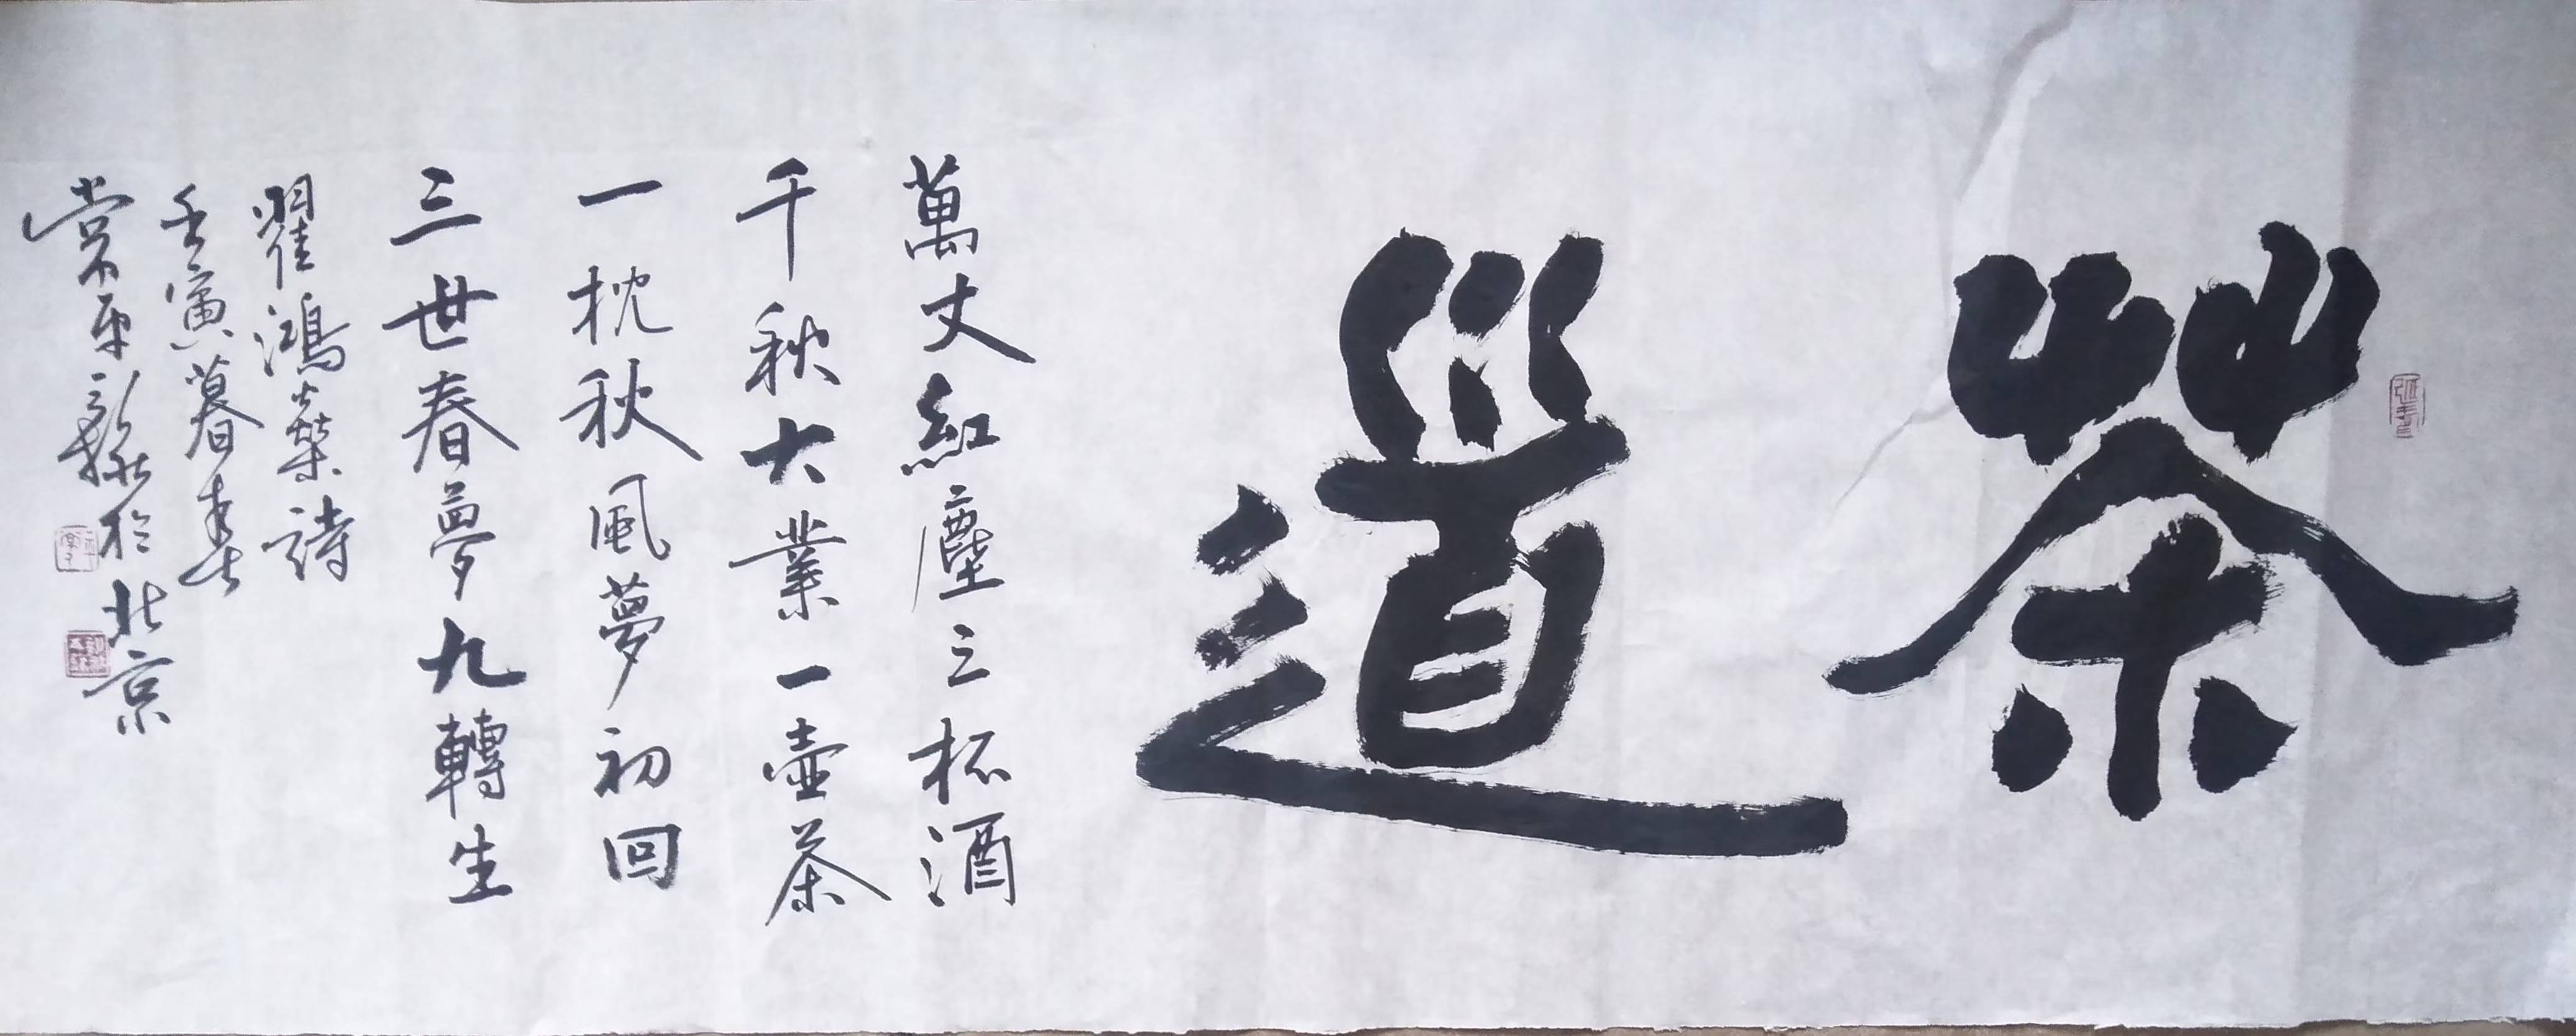 茶道
萬丈紅塵三杯酒
千秋大業一壺茶
一枕秋風夢初回
三世春夢九轉生
翟鴻燊詩
壬寅暮春
常平錄於北京